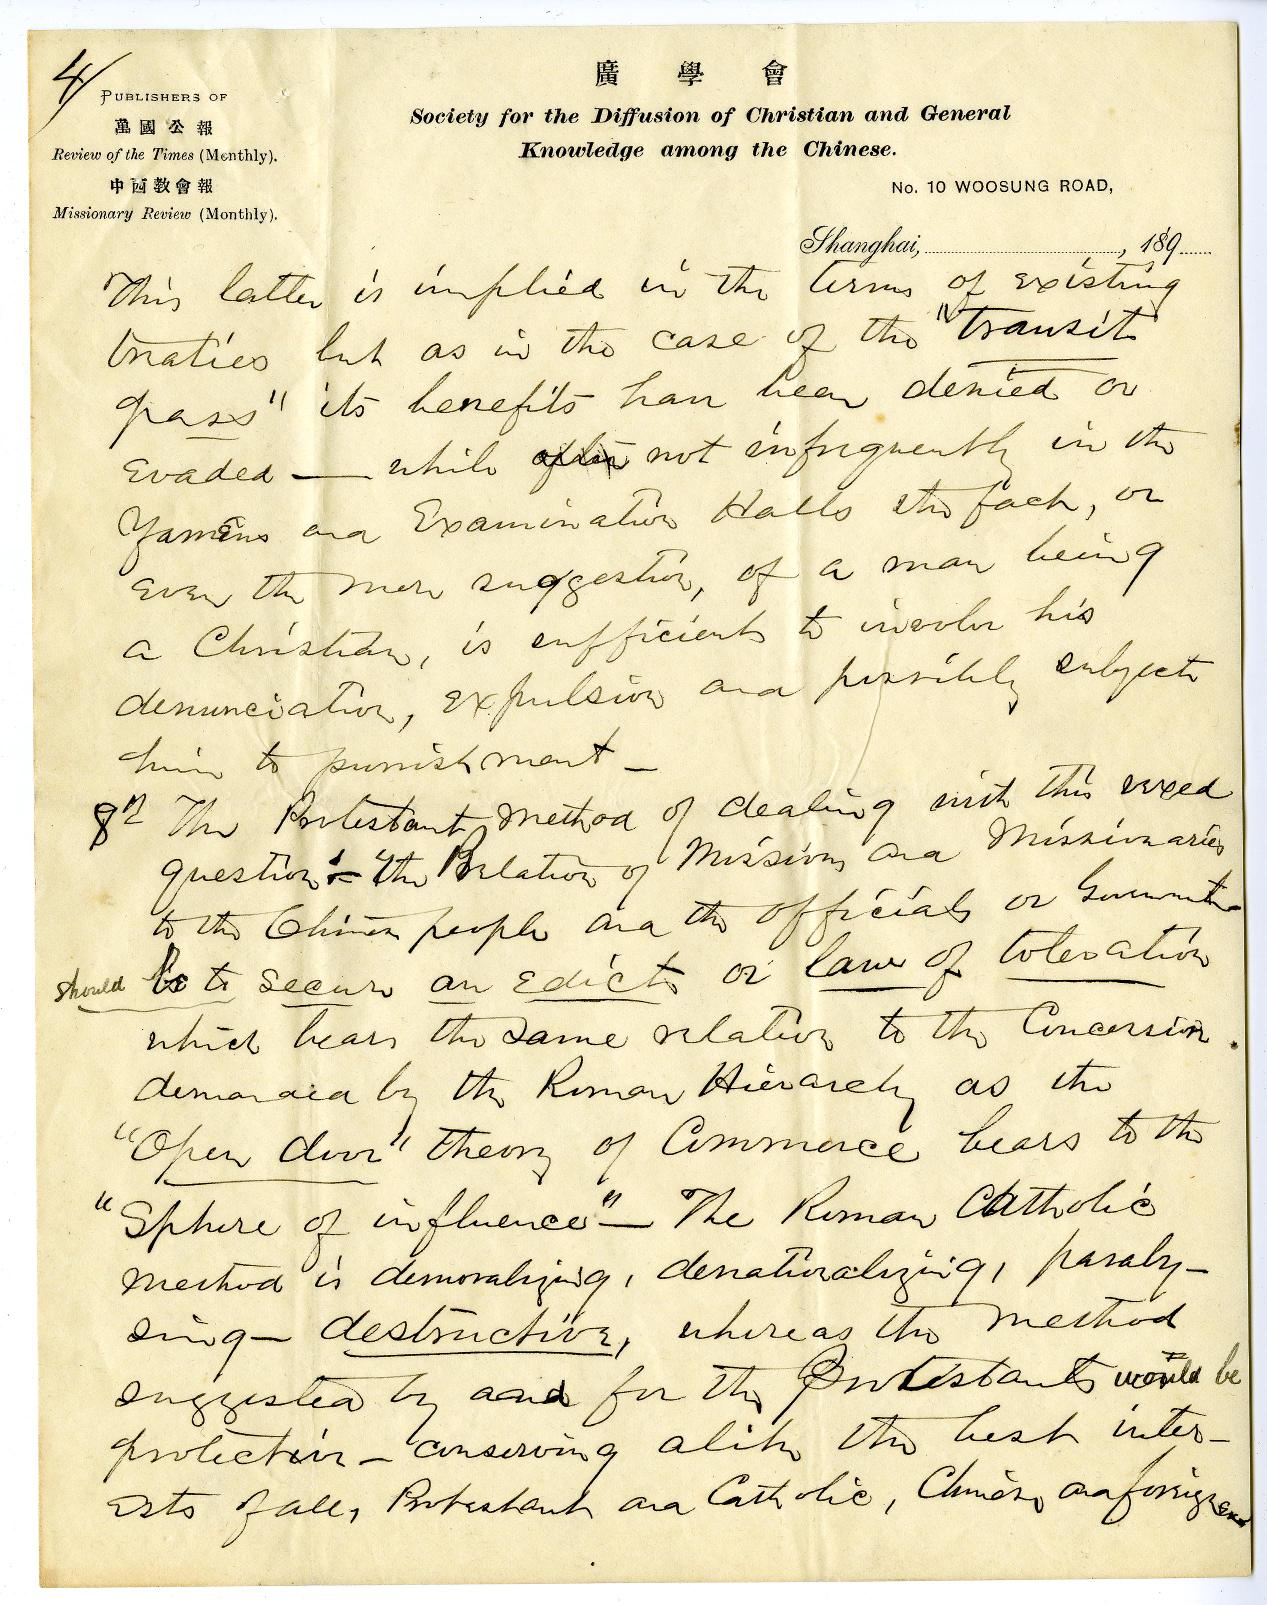 4/
PUBLISHERS OF
萬國公報
Review of the Times (Monthly).
中西教會報
Missionary Review (Monthly).
廣學會
Society for the Diffusion of Christian and General
Knowledge among the Chinese.
No. 10 WOOSUNG ROAD,
Shanghai, , 189
This latter is implied in the terms of existing
treaties but as in the case of the "transit
pass" its benefits have been denied or
evaded — while often not infrequently in the
Yamens and Examination Halls the fact, or
even the mere suggestion, of a man being
a Christian, is sufficient to involve his
denunciation, expulsion and possibly subject
him to punishment —
8th The Protestant Method of dealing with this vexed
question :- "the Relation of Missions and Missionaries
to the Chinese people and the officials or Government
should be to secure an edict or law of toleration
which bears the same relation to the Concession
demanded by the Roman Hierarchy as the
"Open door" theory of Commerce bears to the
"Sphere of influence" — The Roman Catholic
method is demoralizing, denationalizing, paraly-
sing — destructive, whereas the method
suggested by and for the Protestants would be
protective — conserving alike the best inter-
ests of all, Protestant and Catholic, Chinese and foreigner